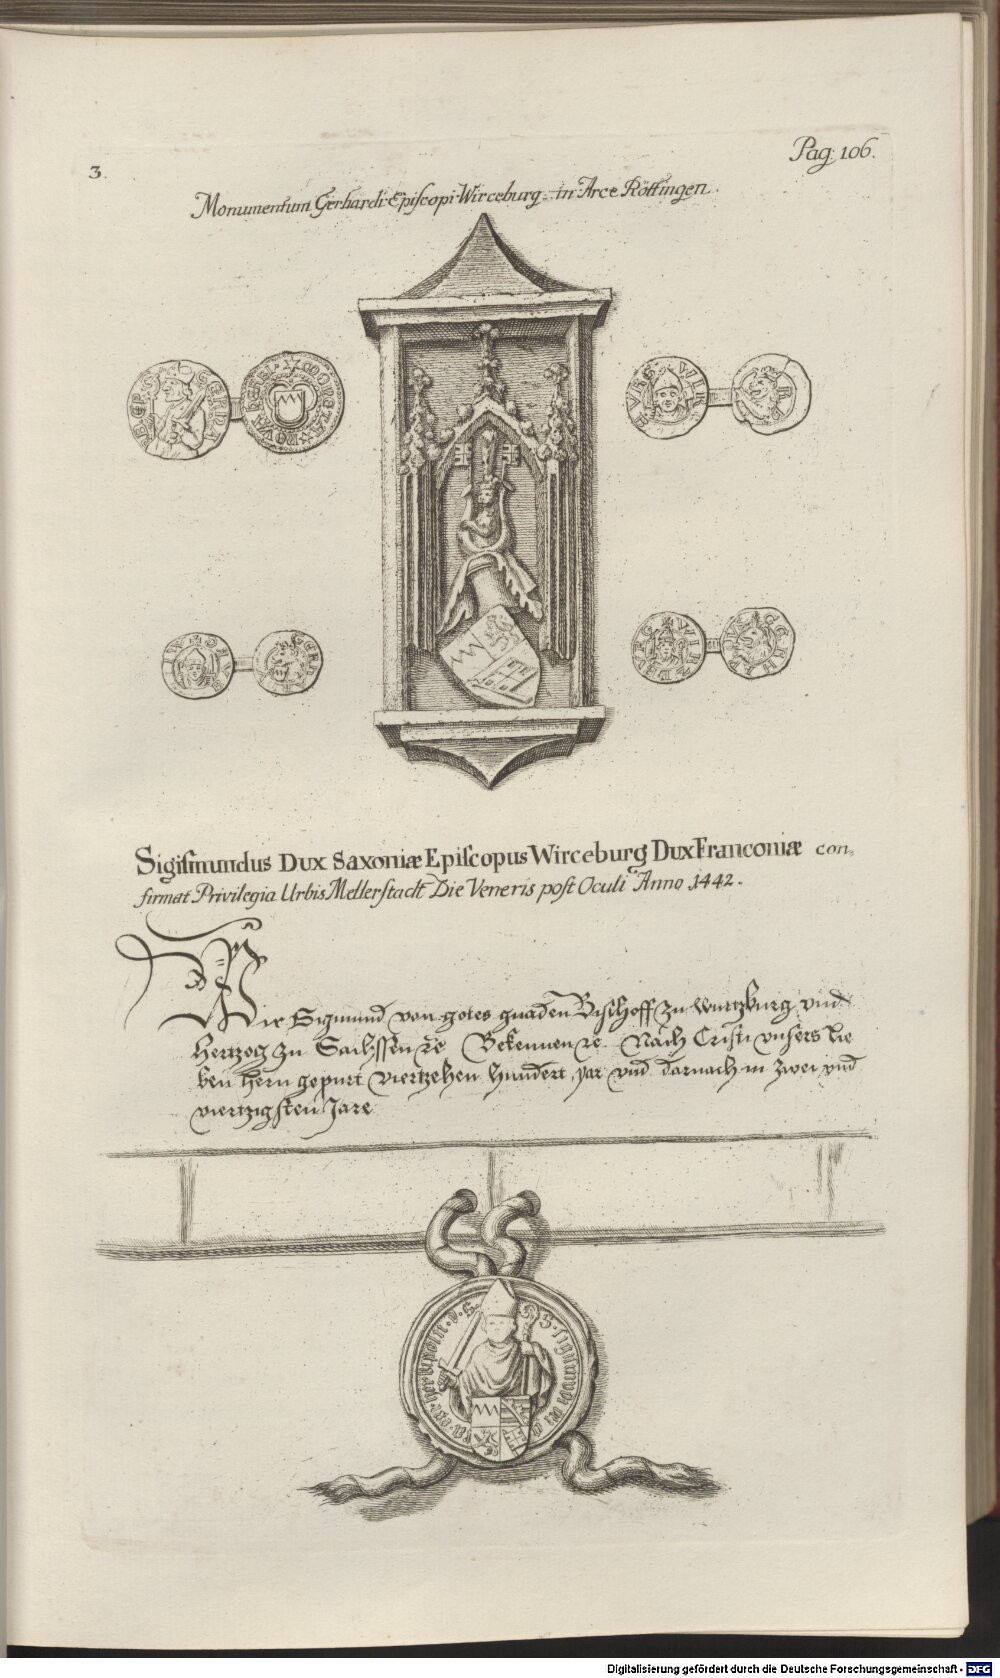 3.
Pag: 106.
Monumentum Gerhardi Epiſcopi Wirceburg: in Arce Röttingen.
Sigiſmundus Dux Saxoniæ Epiſcopus Wirceburg Dux Franconiæ con-
firmat Privilegia Urbis Mellerſtadt Die Veneris poſt Oculi Anno 1442.
Wir Sigmund von gotes gnaden Biſchoff zu Wurtzburg vnd
Hertzog zu Sachſſen ꝛc Bekennen ꝛc. Nach Criſti vnſers lie
ben hern gepurt viertzehen hundert yar vnd darnach in zwei vnd
viertzigſten Jare
Digitalisierung gefördert durch die Deutsche Forschungsgemeinschaft - DFG